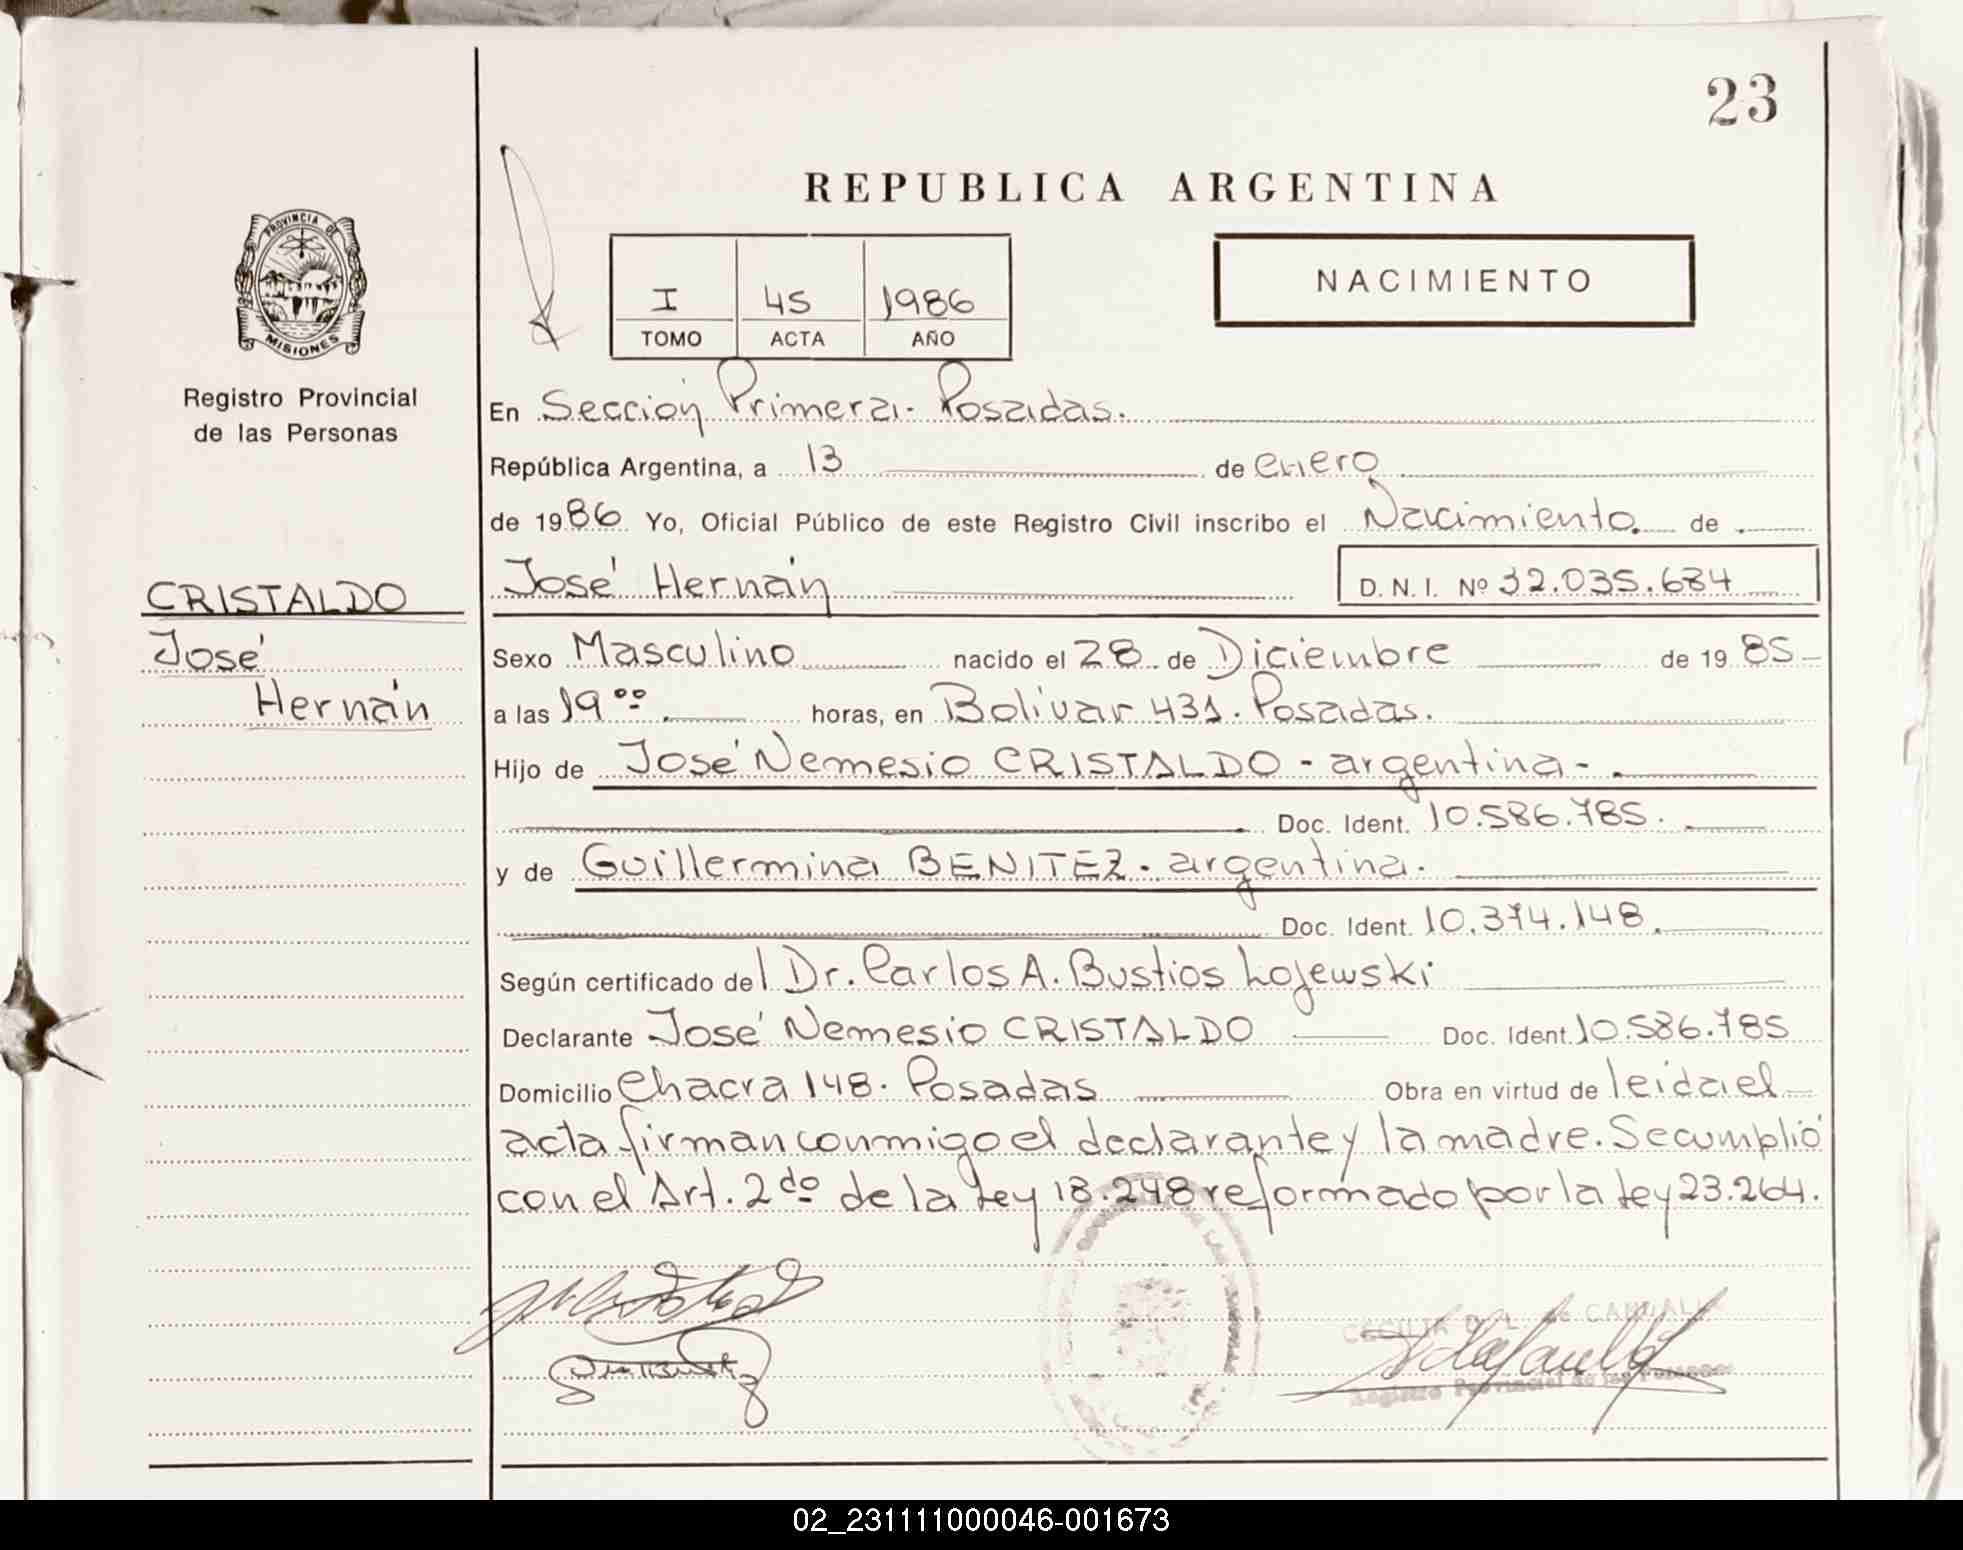 23
REPUBLICA ARGENTINA
PROVINCIA DE
MISIONES
Registro Provincial
de las Personas
I 45 1986
TOMO ACTA AÑO
NACIMIENTO
En Sección Primera. Posadas.
República Argentina, a 13 de enero
de 1986 Yo, Oficial Público de este Registro Civil inscribo el Nacimiento. de
José Hernán D.N.I. Nº 32.035.684
CRISTALDO
José
Hernán
Sexo Masculino nacido el 28 de Diciembre de 1985
a las 19 ºº horas, en Bolivar 431. Posadas.
Hijo de José Nemesio CRISTALDO - argentina -.
Doc. Ident. 10.586.785.
y de Guillermina BENITEZ - argentina.
Doc. Ident. 10.374.148.
Según certificado del Dr. Carlos A. Bustios Lojewski
Declarante José Nemesio CRISTALDO Doc. Ident. 10.586.785
Domicilio Chacra 148. Posadas Obra en virtud de leida el
acta firman conmigo el declarante y la madre. Se cumplió
con el Art. 2do de la Ley 18.248 reformado por la Ley 23.264.
Registro Provincial de las Personas
02_231111000046-001673